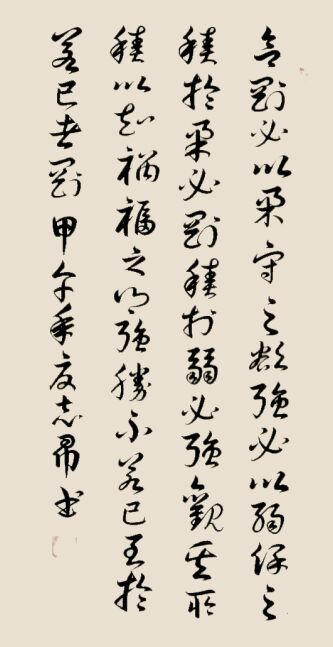 剛必以柔守之欲強必以弱保之
積於柔必剛積於弱必強觀其所
積以知禍福之鄉強勝不若己至於
若己者剛甲午年夏志書